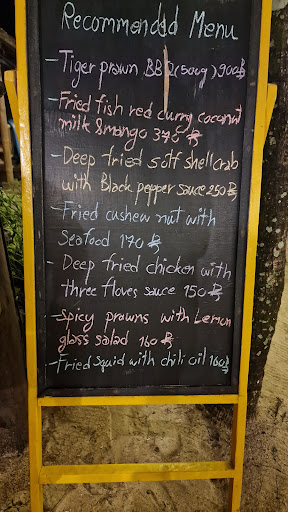 Recommended Menu
- Tiger prawn BBQ (500g) 900฿
- Fried fish red curry coconut
milk & mango 370 ฿
- Deep fried soft shell crab
with Black pepper sauce 250 ฿
- Fried cashew nut with
Seafood 170 ฿
- Deep fried chicken with
three floves sauce 150 ฿
- Spicy prawns with Lemon
glass salad 160 ฿
- Fried Squid with chili oil 160฿